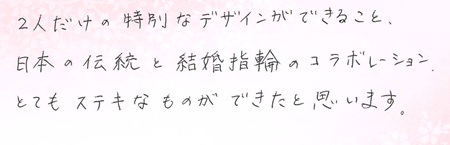 2人だけの特別なデザインができること、
日本の伝統と結婚指輪のコラボレーション.
とてもステキなものができたと思います。